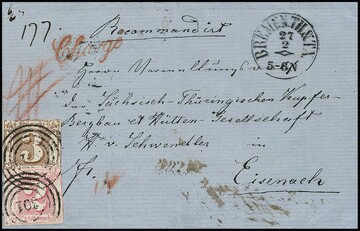 177.
Recommandirt
Charge
BREMEN TH. & TX.
27
2
5-6 N
Herrn
der Sächsisch-Thüringischen Kupfer-
Bergbau & Hütten-Gesellschaft
H. v. Schwendler
Fr.
in
Eisenach
3
101